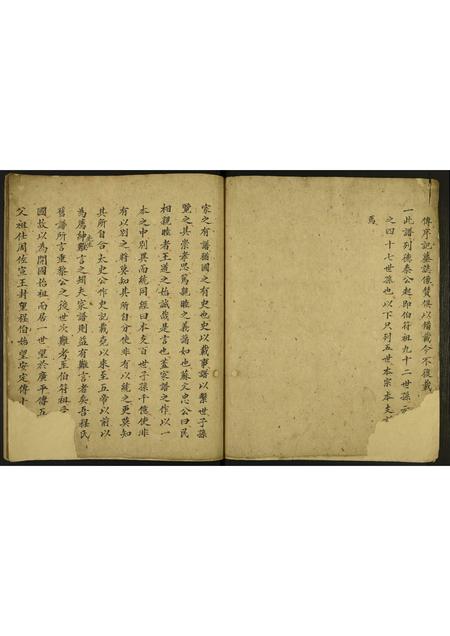 傳序記墓誌像贊俱以備載今不復載
一此譜列德泰公起即伯符祖九十二世孫
之四十七世孫也以下只列五世本宗本支
焉
家之有譜猶國之有史也史以載事譜以繫世子孫
覽之其崇孝思篤親睦之義諸如也蘇文忠公曰民
相親睦者王道之始誠哉是言也蓋家譜之作以一
本之中別異而統同經曰本支百世子孫千億使非
有以別之將莫知其所自分使非有以統之更莫知
其所自合太史公作史記載堯以來至五帝以前以
為薦紳先生難言之矧夫家譜則益有難言者矣吾程氏
舊譜所言重黎公之後世次難考至伯符祖
國故以為開國始祖而居一世望於廣平傳五
父祖仕周佐宣王封望程伯始望安定傳十